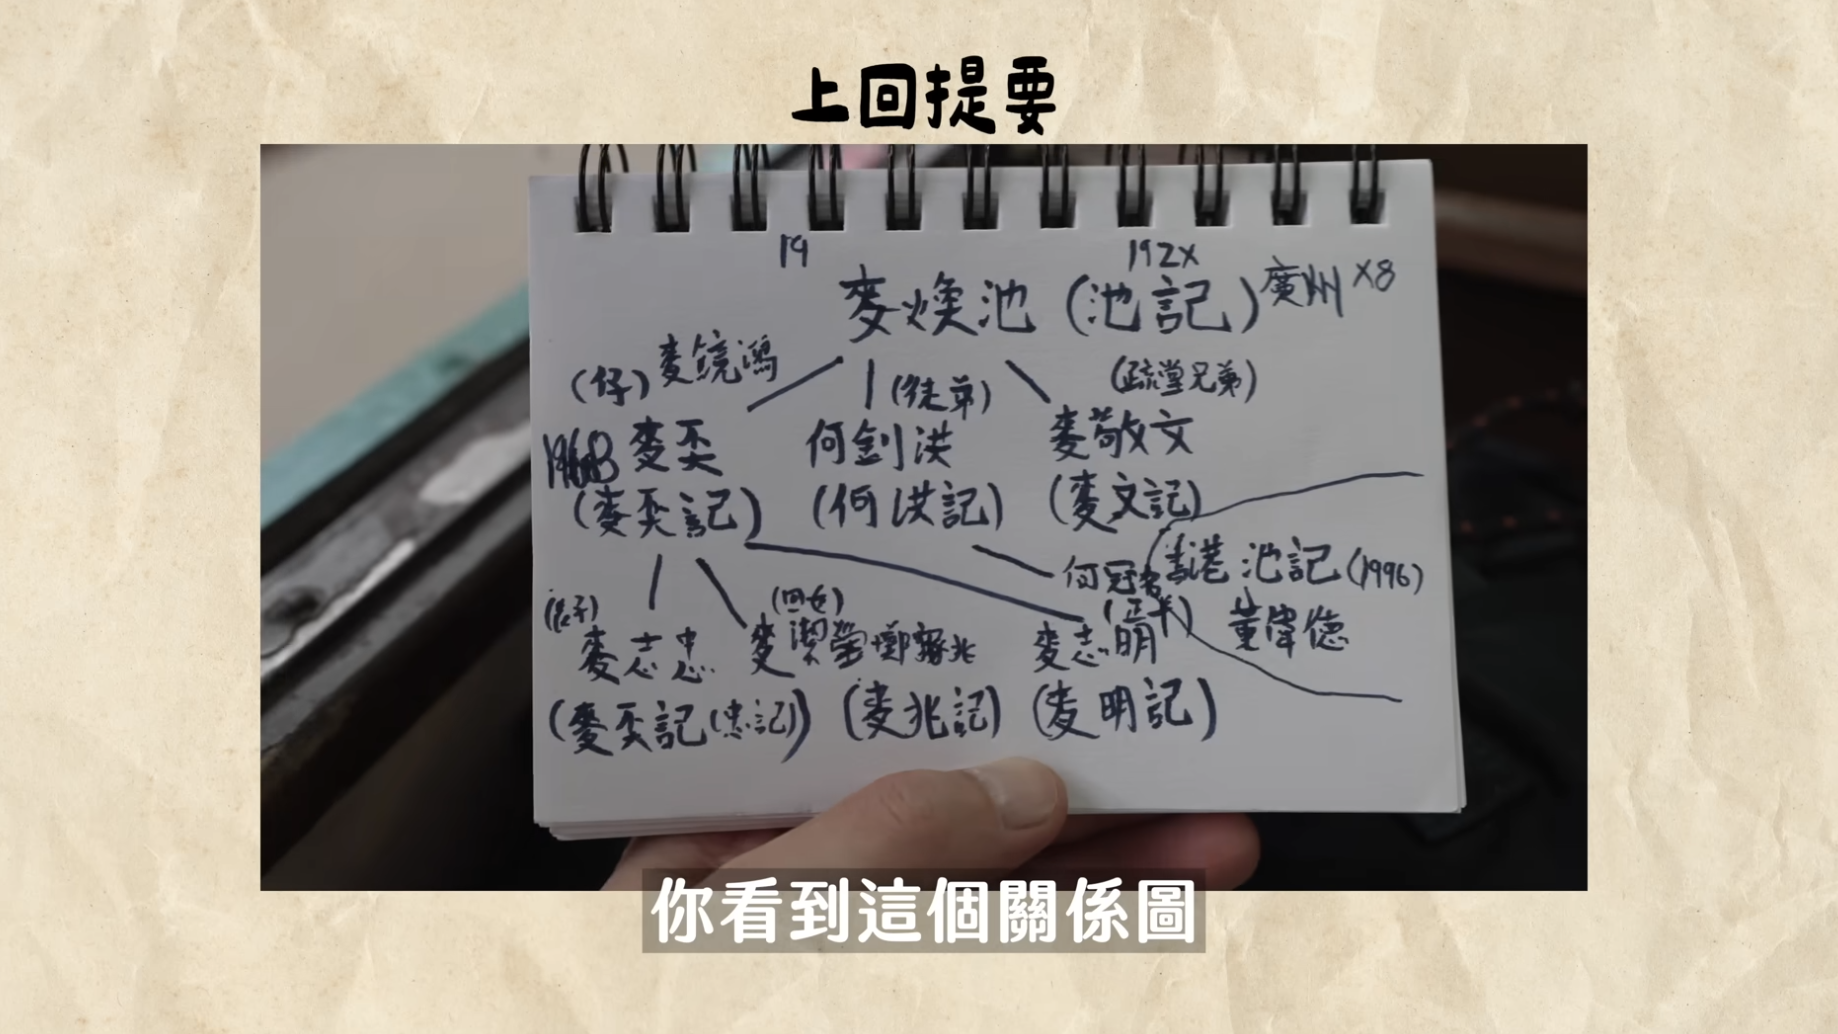 上回提要
19
192X
麥煥池（池記）廣州 X8
(仔) 麥鏡鴻
(徒弟)
(疏堂兄弟)
1968 麥奀
何釗洪
麥敬文
(麥奀記)
(何洪記)
(麥文記)
香港 池記 (1996)
何冠
(正斗)
董偉德
(長子)
(四女)
麥志忠
麥潔瑩
麥志明
(麥奀記(忠記))
(麥兆記)
(麥明記)
你看到這個關係圖